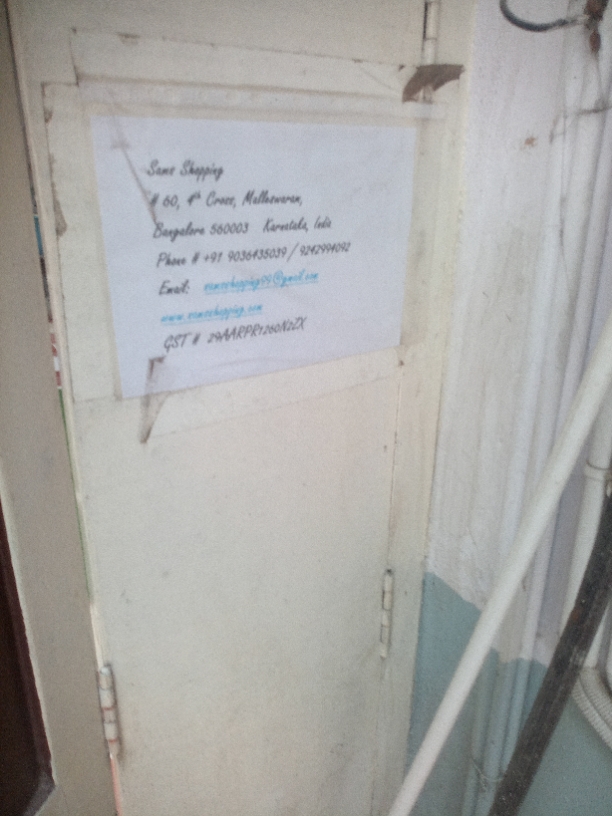 Sams Shopping
# 60, 4th Cross, Malleswaram,
Bangalore 560003 Karnataka, India
Phone # +91 9036435039 / 9242994092
Email: samsshopping99@gmail.com
www.samsshopping.com
GST # 29AARPR1260N2ZX